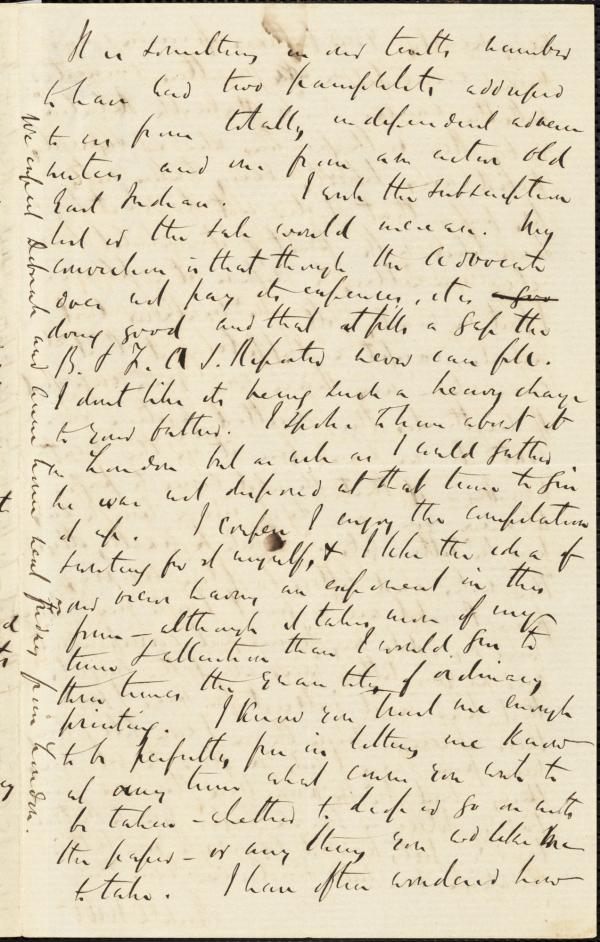 It is something in our tenth number
to have had two pamphlets addressed
to us from totally independent
writers and one from an active old
East Indian. I wish the subscription
list or the sale would increase. My
conviction is that though the Advocate
does not pay its expenses, it is
doing good and that it fills a gap the
B. & F. A. S. Reporter never can fill.
I dont like its being such a heavy charge
to your father. I spoke to him about it
in London but as well as I could gather
he was not disposed at that time to give
it up. I confess I enjoy the compilation
writing for it myself, & I like the idea of
our views having an exponent in this
form - although it takes more of my
time & attention than I would give to
three times the quantity of ordinary
printing. I know you trust me enough
to be perfectly free in letting me know
at any time what course you wish to
be taken - whether to drop or go on with
the paper - or any thing you wd like me
to take. I have often wondered how
We expect Deborah and Anne home next Friday from London.